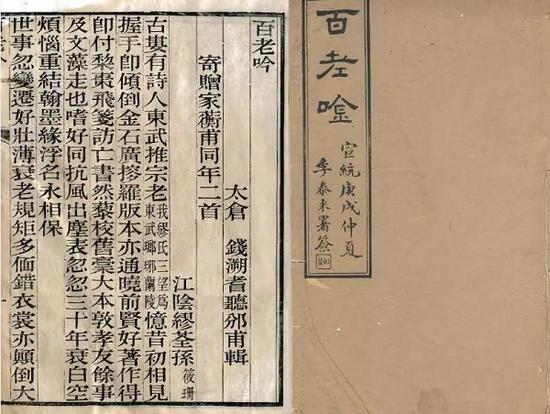 百老唫
宣統庚戌仲夏
李泰來署簽
百老吟
太倉 錢溯耆聽邠甫輯
寄贈家蘅甫同年二首
江陰繆荃孫筱珊
古婁有詩人東武推宗老我繆氏三望爲東武瑯琊蘭陵憶昔初相見
握手卽傾倒金石廣摉羅版本亦通曉前賢好著作得
卽付棃棗飛箋訪亡書然藜校舊藁大本敦孝友餘事
及文藻走也嗜好同抗風出塵表忽忽三十年衰白空
煩惱重結翰墨緣浮名永相保
世事忽變遷好壯薄衰老規矩多偭錯衣裳亦顛倒大